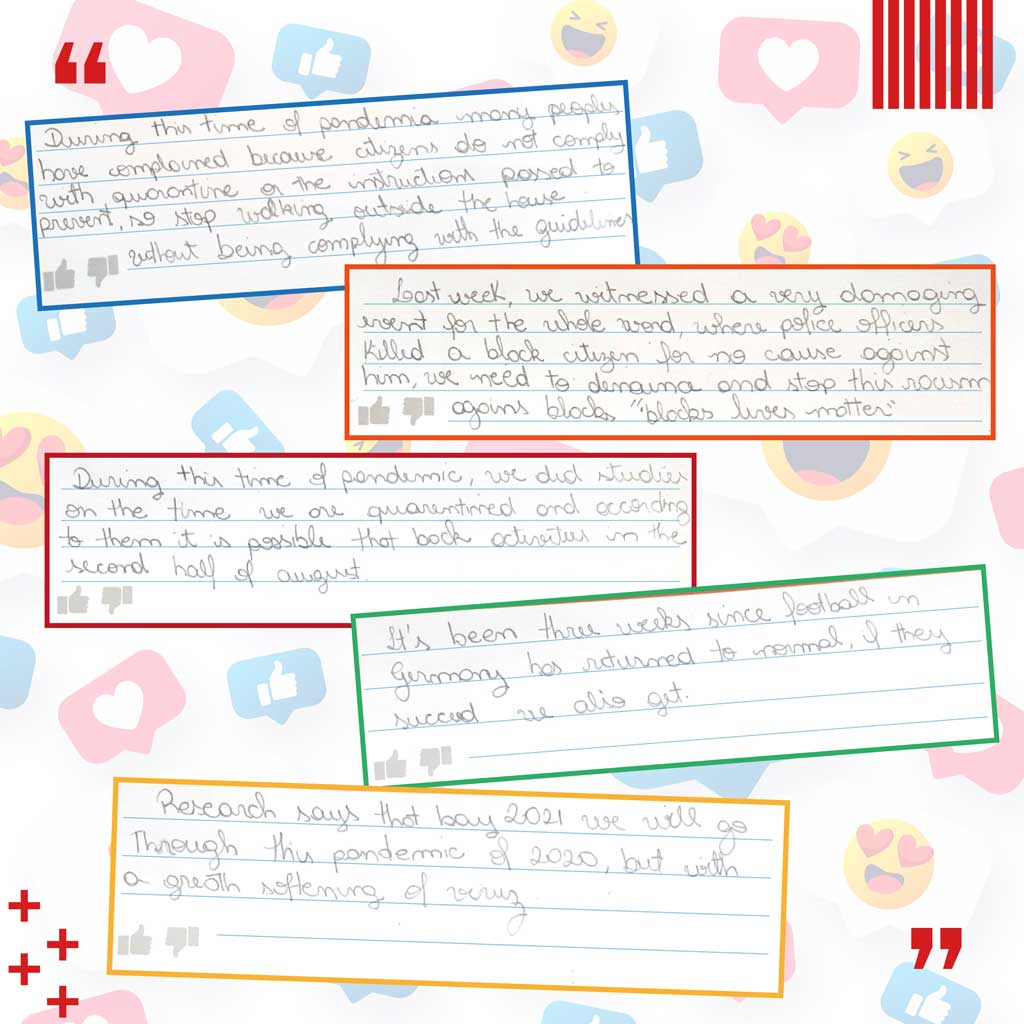 During this time of pandemia many peoples
have complained because citizens do not comply
with quarantine or the instructions passed to
prevent, so stop walking outside the house
without being complying with the guidelines
Last week, we witnessed a very damaging
event for the whole word, where police officers
killed a black citizen for no cause against
him, we need to and stop this racism
agains blacks "blacks lives matter"
During this time of pandemic, we did studies
on the time we are quarentined and according
to them it is possible that back activities in the
second half of august.
It's been three weeks since football in
Germany has returned to normal, if they
succed we also get.
Research says that 2021 we will go
Through this pandemic of 2020, but with
a softening of